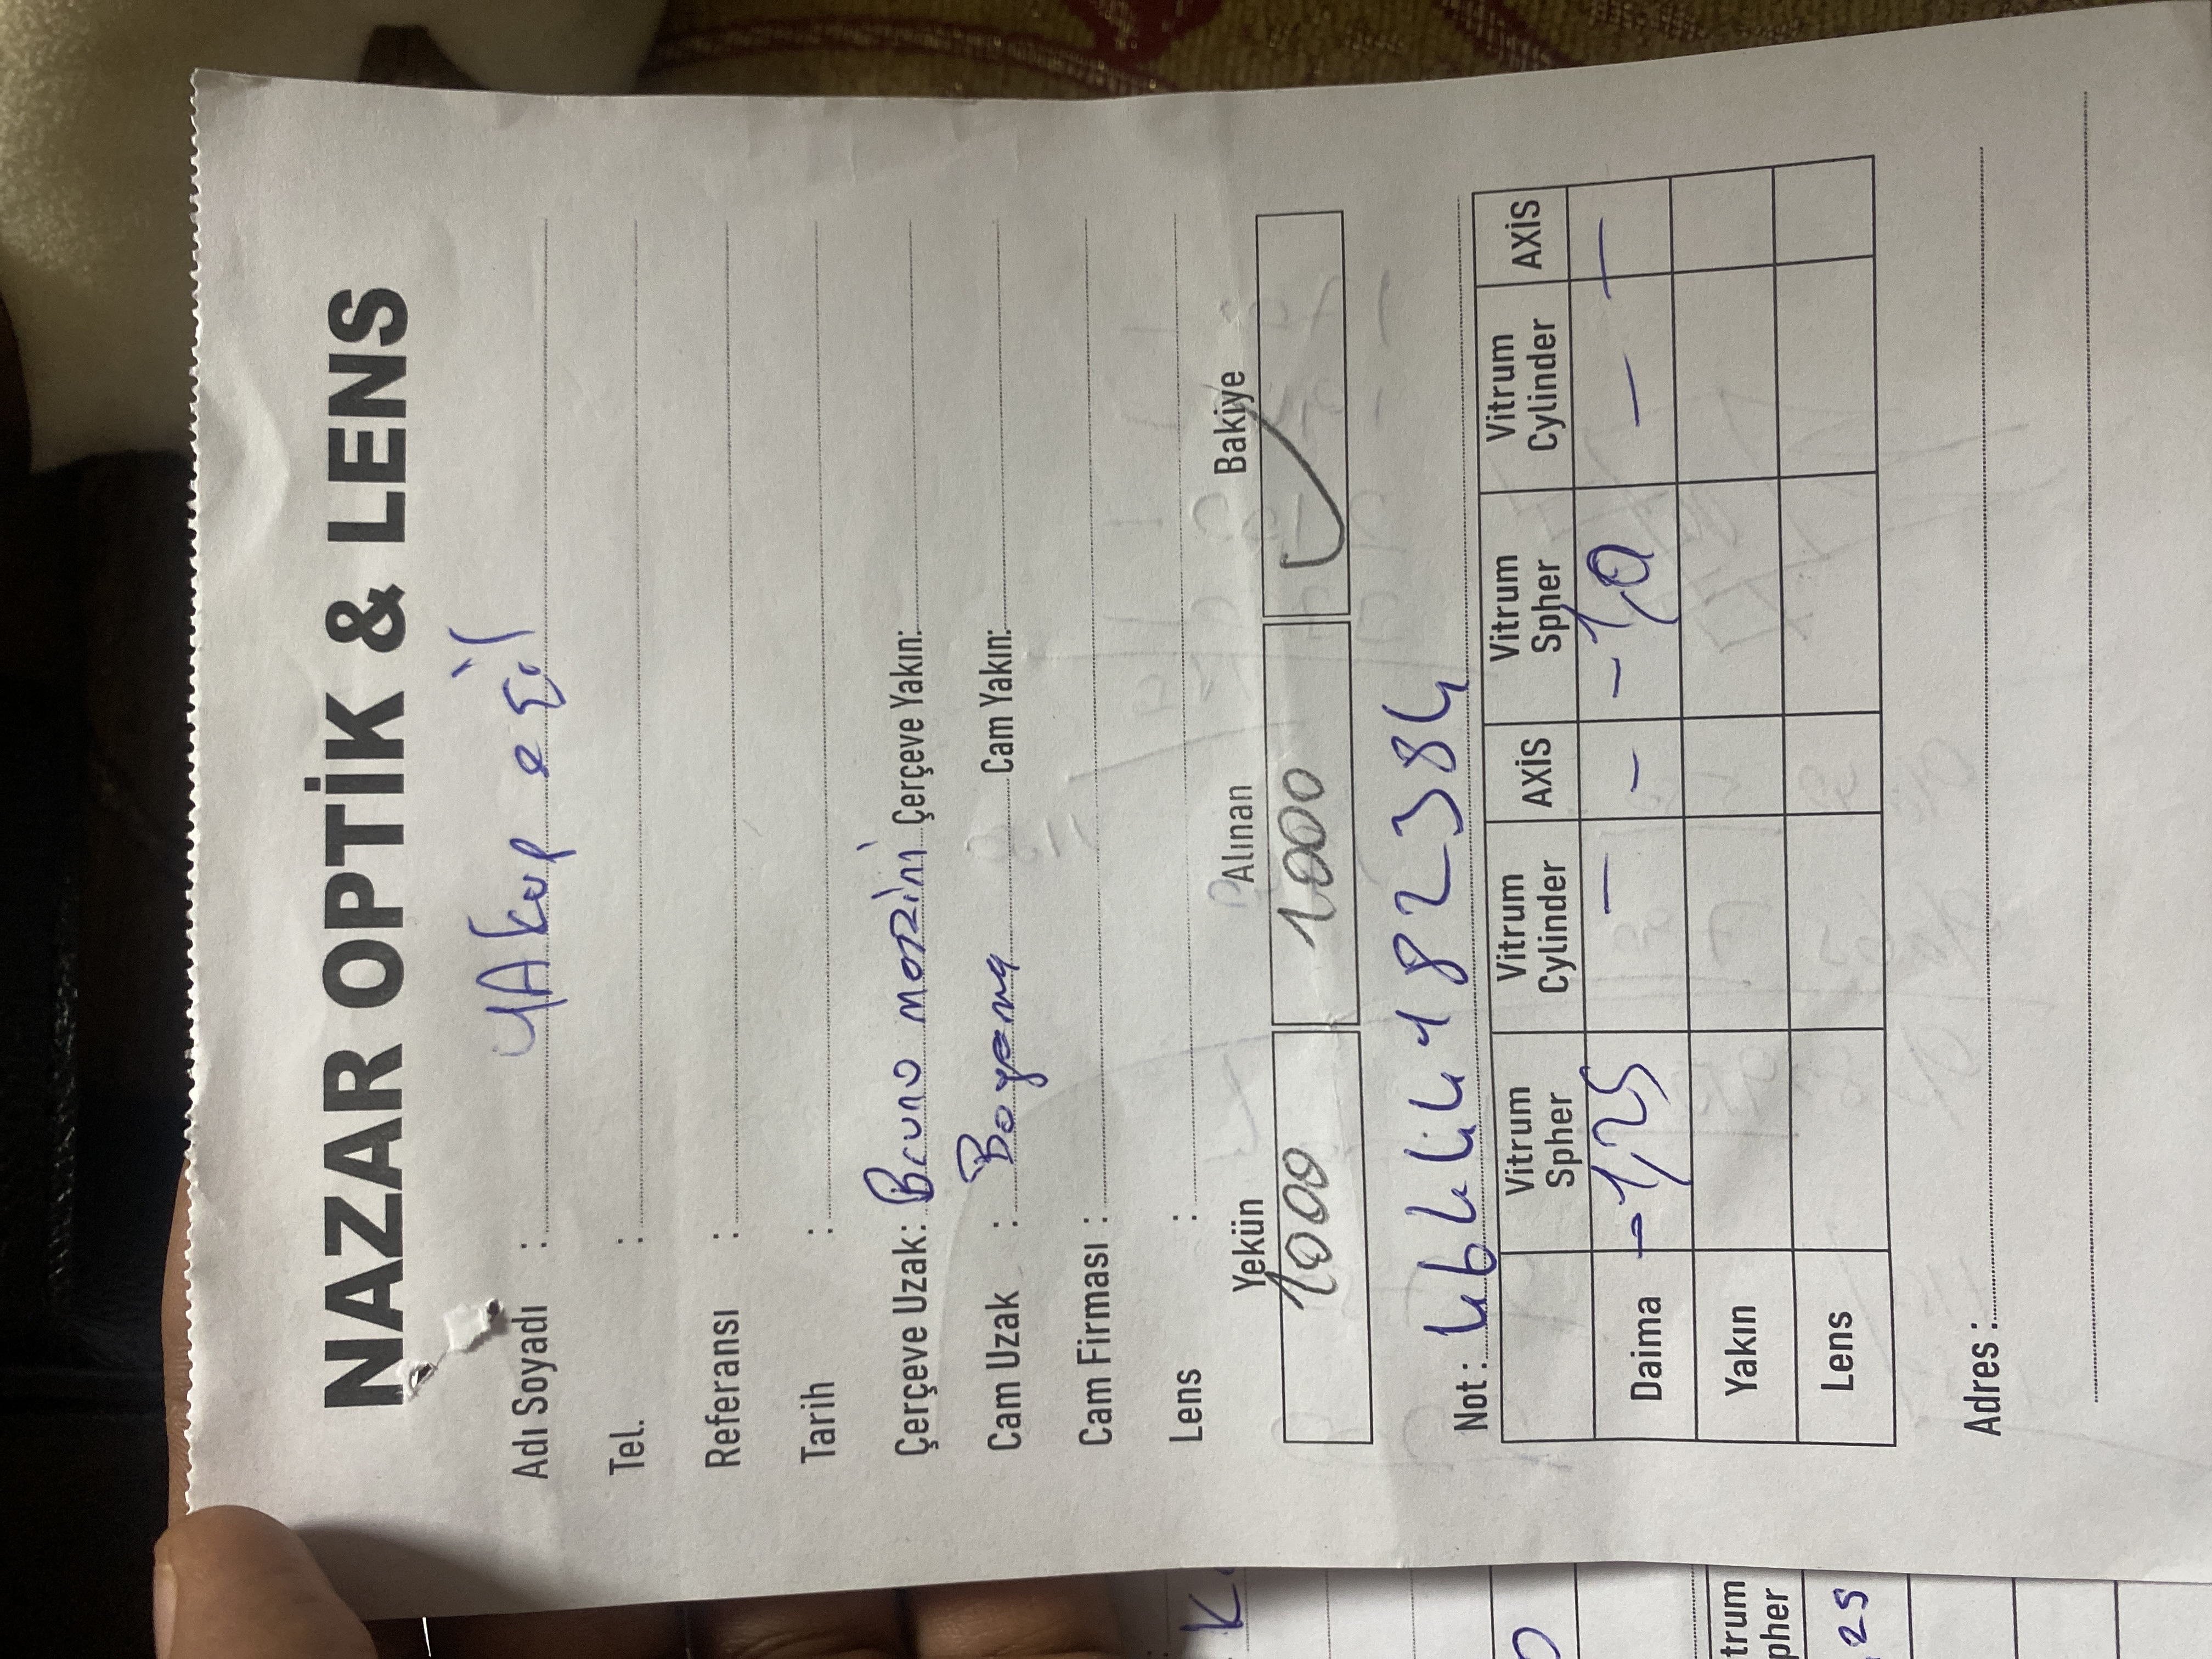 NAZAR OPTİK & LENS
Adı Soyadı : YAkup eğil
Tel. :
Referansı :
Tarih :
Çerçeve Uzak: Bruno mazzini Çerçeve Yakın:
Cam Uzak : Boyama Cam Yakın:
Cam Firması :
Lens :
Yekün Alınan Bakiye
1000 1000 ✓
Not : 46444182384
Vitrum Spher Vitrum Cylinder AXİS Vitrum Spher Vitrum Cylinder AXİS
Daima -1,25 - - -1,0 - -
Yakın
Lens
Adres :
trum
pher
,25